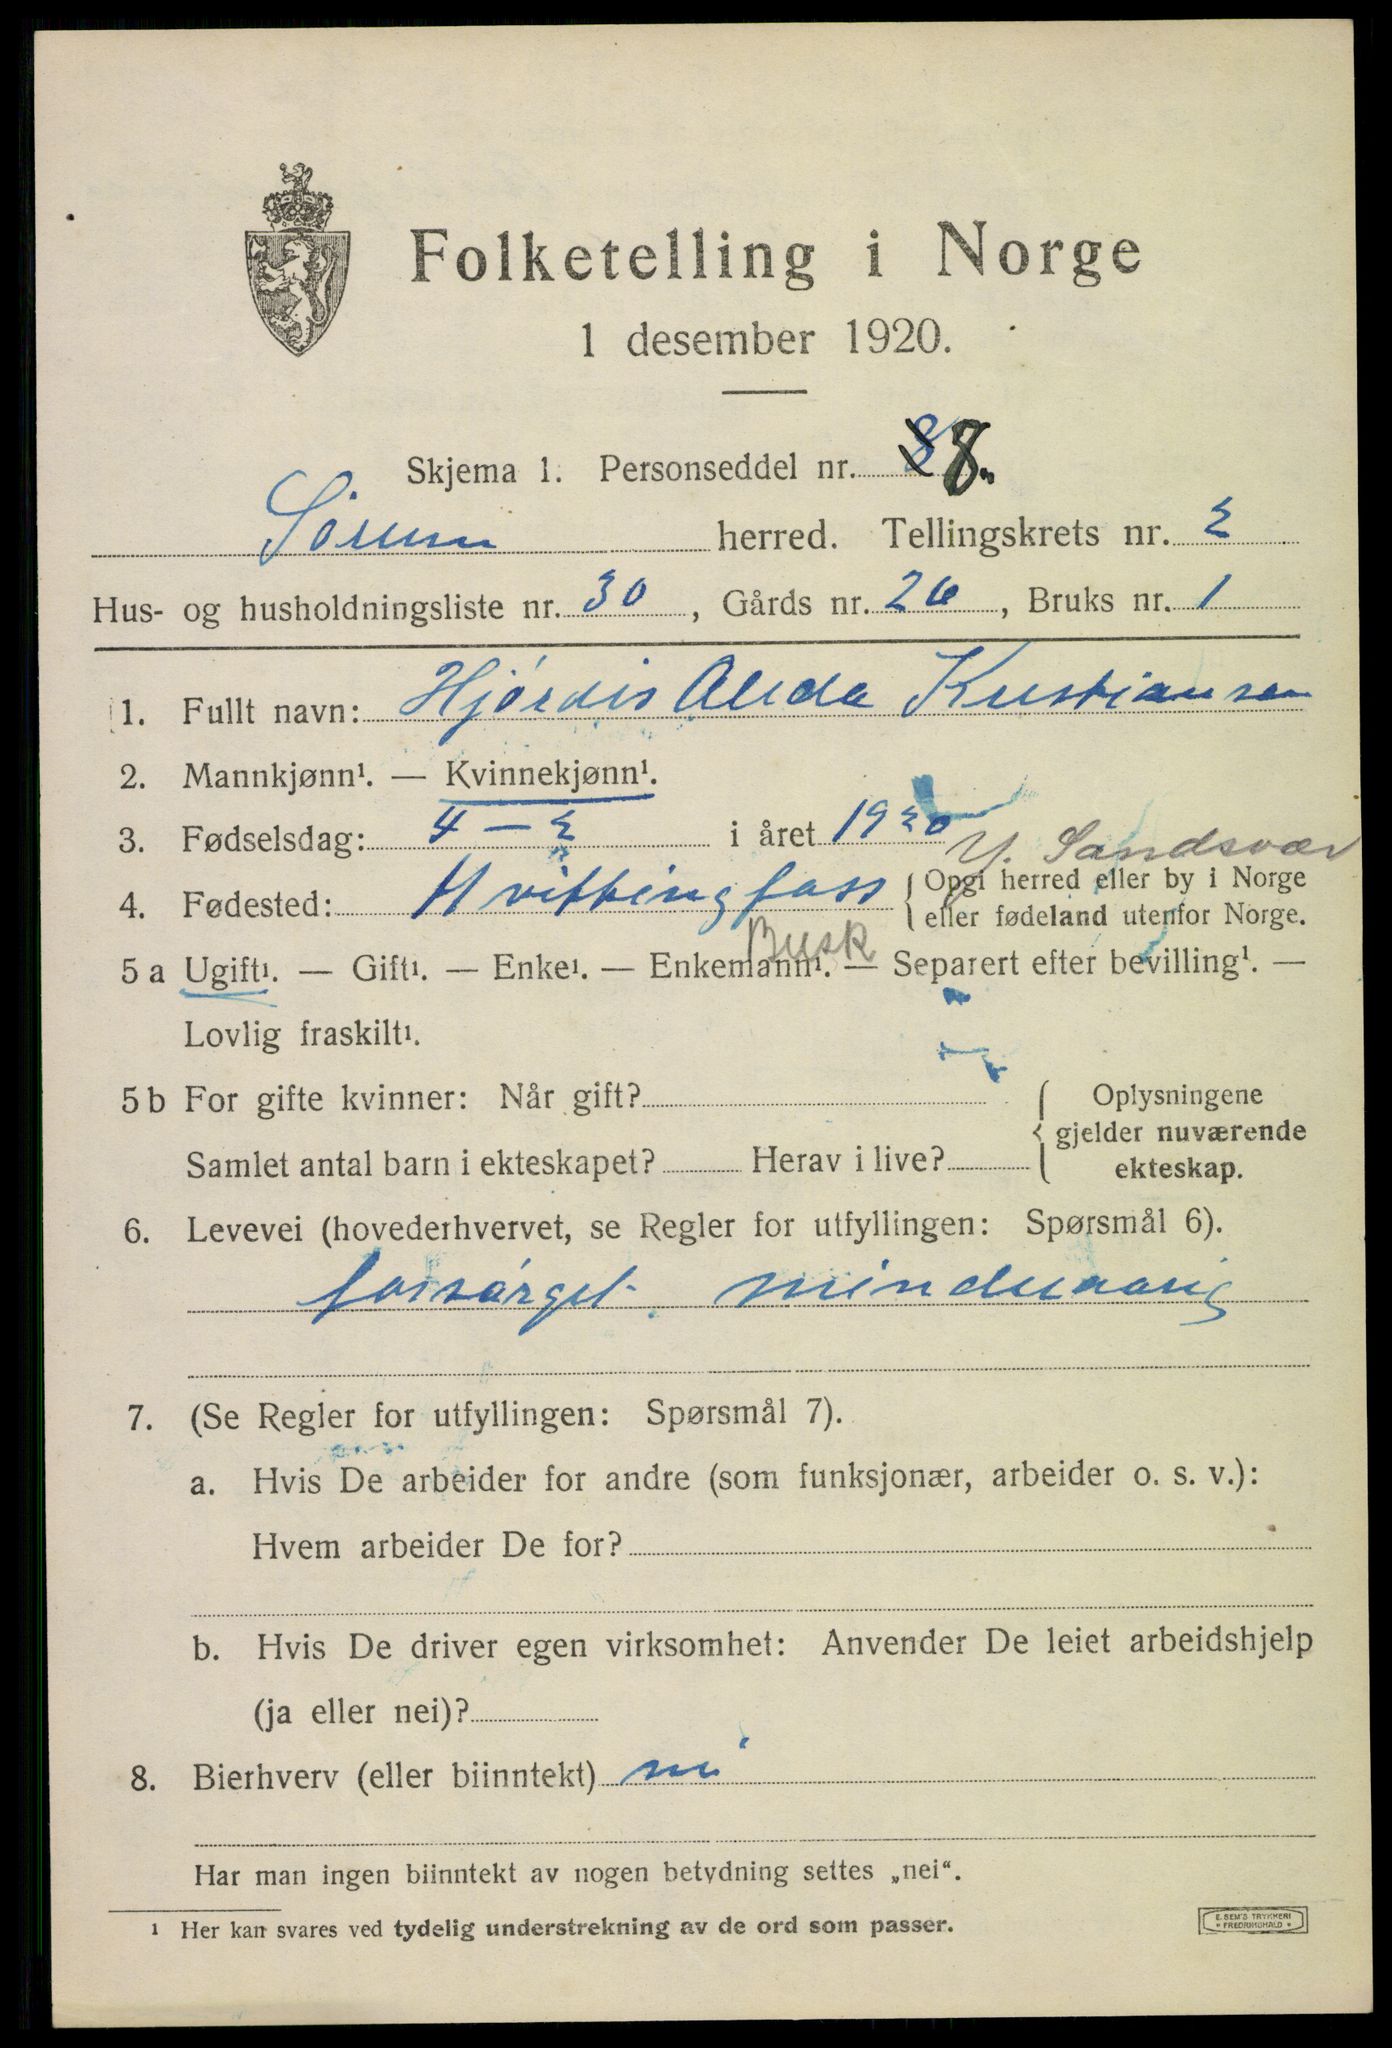 Folketelling i Norge
1 desember 1920.
Skjema 1. Personseddel nr. 8 8.
Sörum herred. Tellingskrets nr. 2
Hus- og husholdningsliste nr. 30, Gårds nr. 26, Bruks nr. 1
1. Fullt navn: Hjördis Alida Kristiansen
2. Mannkjønn¹. — Kvinnekjønn¹.
3. Fødselsdag: 4 – 2 i året 1920
Y. Sandsvær
4. Fødested: Hvittingfoss { Opgi herred eller by i Norge
eller fødeland utenfor Norge.
Busk
5 a Ugift¹. — Gift¹. — Enke¹. — Enkemann¹. — Separert efter bevilling¹. —
Lovlig fraskilt¹.
5 b For gifte kvinner: Når gift? { Oplysningene
gjelder nuværende
Samlet antal barn i ekteskapet? Herav i live? ekteskap.
6. Levevei (hovederhvervet, se Regler for utfyllingen: Spørsmål 6).
forsörget. mindreaarig
7. (Se Regler for utfyllingen: Spørsmål 7).
a. Hvis De arbeider for andre (som funksjonær, arbeider o. s. v.):
Hvem arbeider De for?
b. Hvis De driver egen virksomhet: Anvender De leiet arbeidshjelp
(ja eller nei)?
8. Bierhverv (eller biinntekt) nei
Har man ingen biinntekt av nogen betydning settes „nei“.
¹ Her kan svares ved tydelig understrekning av de ord som passer.
E. SEM'S TRYKKERI
* FREDRIKSHALD *